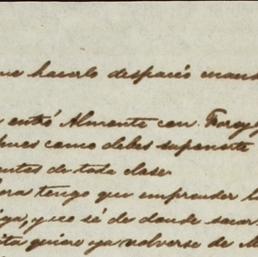 que hacerlo despacio
entró Almonte con
pues como debes suponerte
entas de toda clase.
ora tengo que emprender la
iga, y no sé de donde sacar
ita quiere ya volverse de M